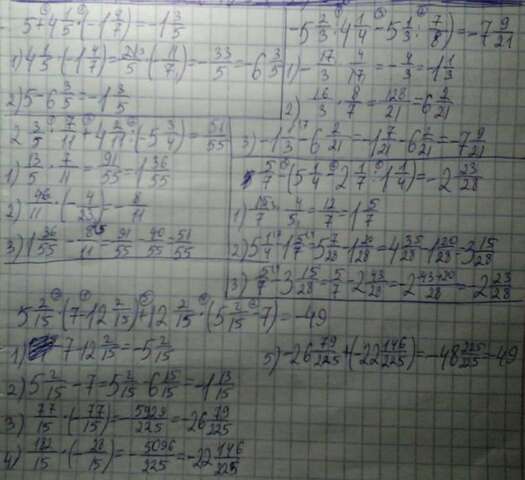 5+4 1/5 · (-1 4/7) = -1 3/5
1) 4 1/5 · (-1 4/7) = 21/5 · (-11/7) = -33/5 = 6 3/5
2) 5-6 3/5 = -1 3/5
-5 2/3 : 4 1/4 - 5 1/3 : 7/8 = -7 9/21
1) -17/3 · 4/17 = -4/3 = -1 1/3
2) 16/3 · 8/7 = 128/21 = 6 2/21
3) -1 1/3 - 6 2/21 = -1 7/21 - 6 2/21 = -7 9/21
2 3/5 · 7/11 + 4 2/11 : (-5 3/4) = 51/55
1) 13/5 · 7/11 = 91/55 = 1 36/55
2) 46/11 · (-4/23) = -8/11
3) 1 36/55 - 8/11 = 91/55 - 40/55 = 51/55
5/7 - (5 1/4 - 2 1/7 : 1 1/4) = -2 23/28
1) 15/7 · 4/5 = 12/7 = 1 5/7
2) 5 1/4 - 1 5/7 = 5 7/28 - 1 20/28 = 4 35/28 - 1 20/28 = 3 15/28
3) 5/7 - 3 15/28 = 5/7 - 2 43/28 = -2 -43+20/28 = -2 23/28
5 2/15 · (7-12 2/15) + 12 2/15 · (5 2/15 - 7) = -49
1) 7-12 2/15 = -5 2/15
2) 5 2/15 - 7 = 5 2/15 - 6 15/15 = -1 13/15
3) 77/15 · (-77/15) = -5929/225 = -26 79/225
4) 182/15 · (-28/15) = -5096/225 = -22 146/225
5) -26 79/225 + (-22 146/225) = -48 225/225 = -49